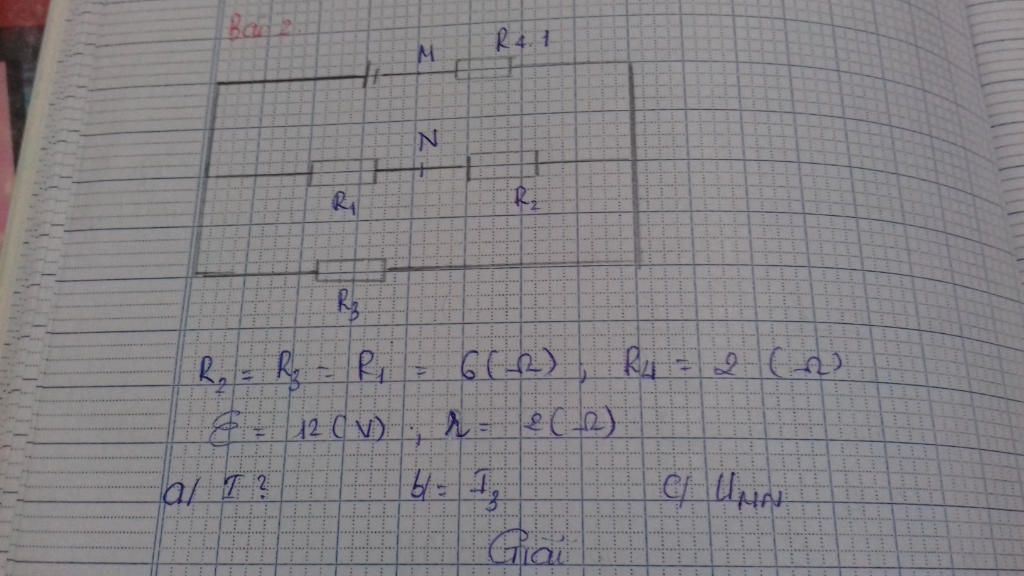 Bài 2.
M R4.1
N
R1 R2
R3
R2 = R3 = R1 = 6 (Ω) , R4 = 2 (Ω)
ℰ = 12 (V) ; r = 2 (Ω)
a/ I ? b/ = I3 c/ UMN
Giải